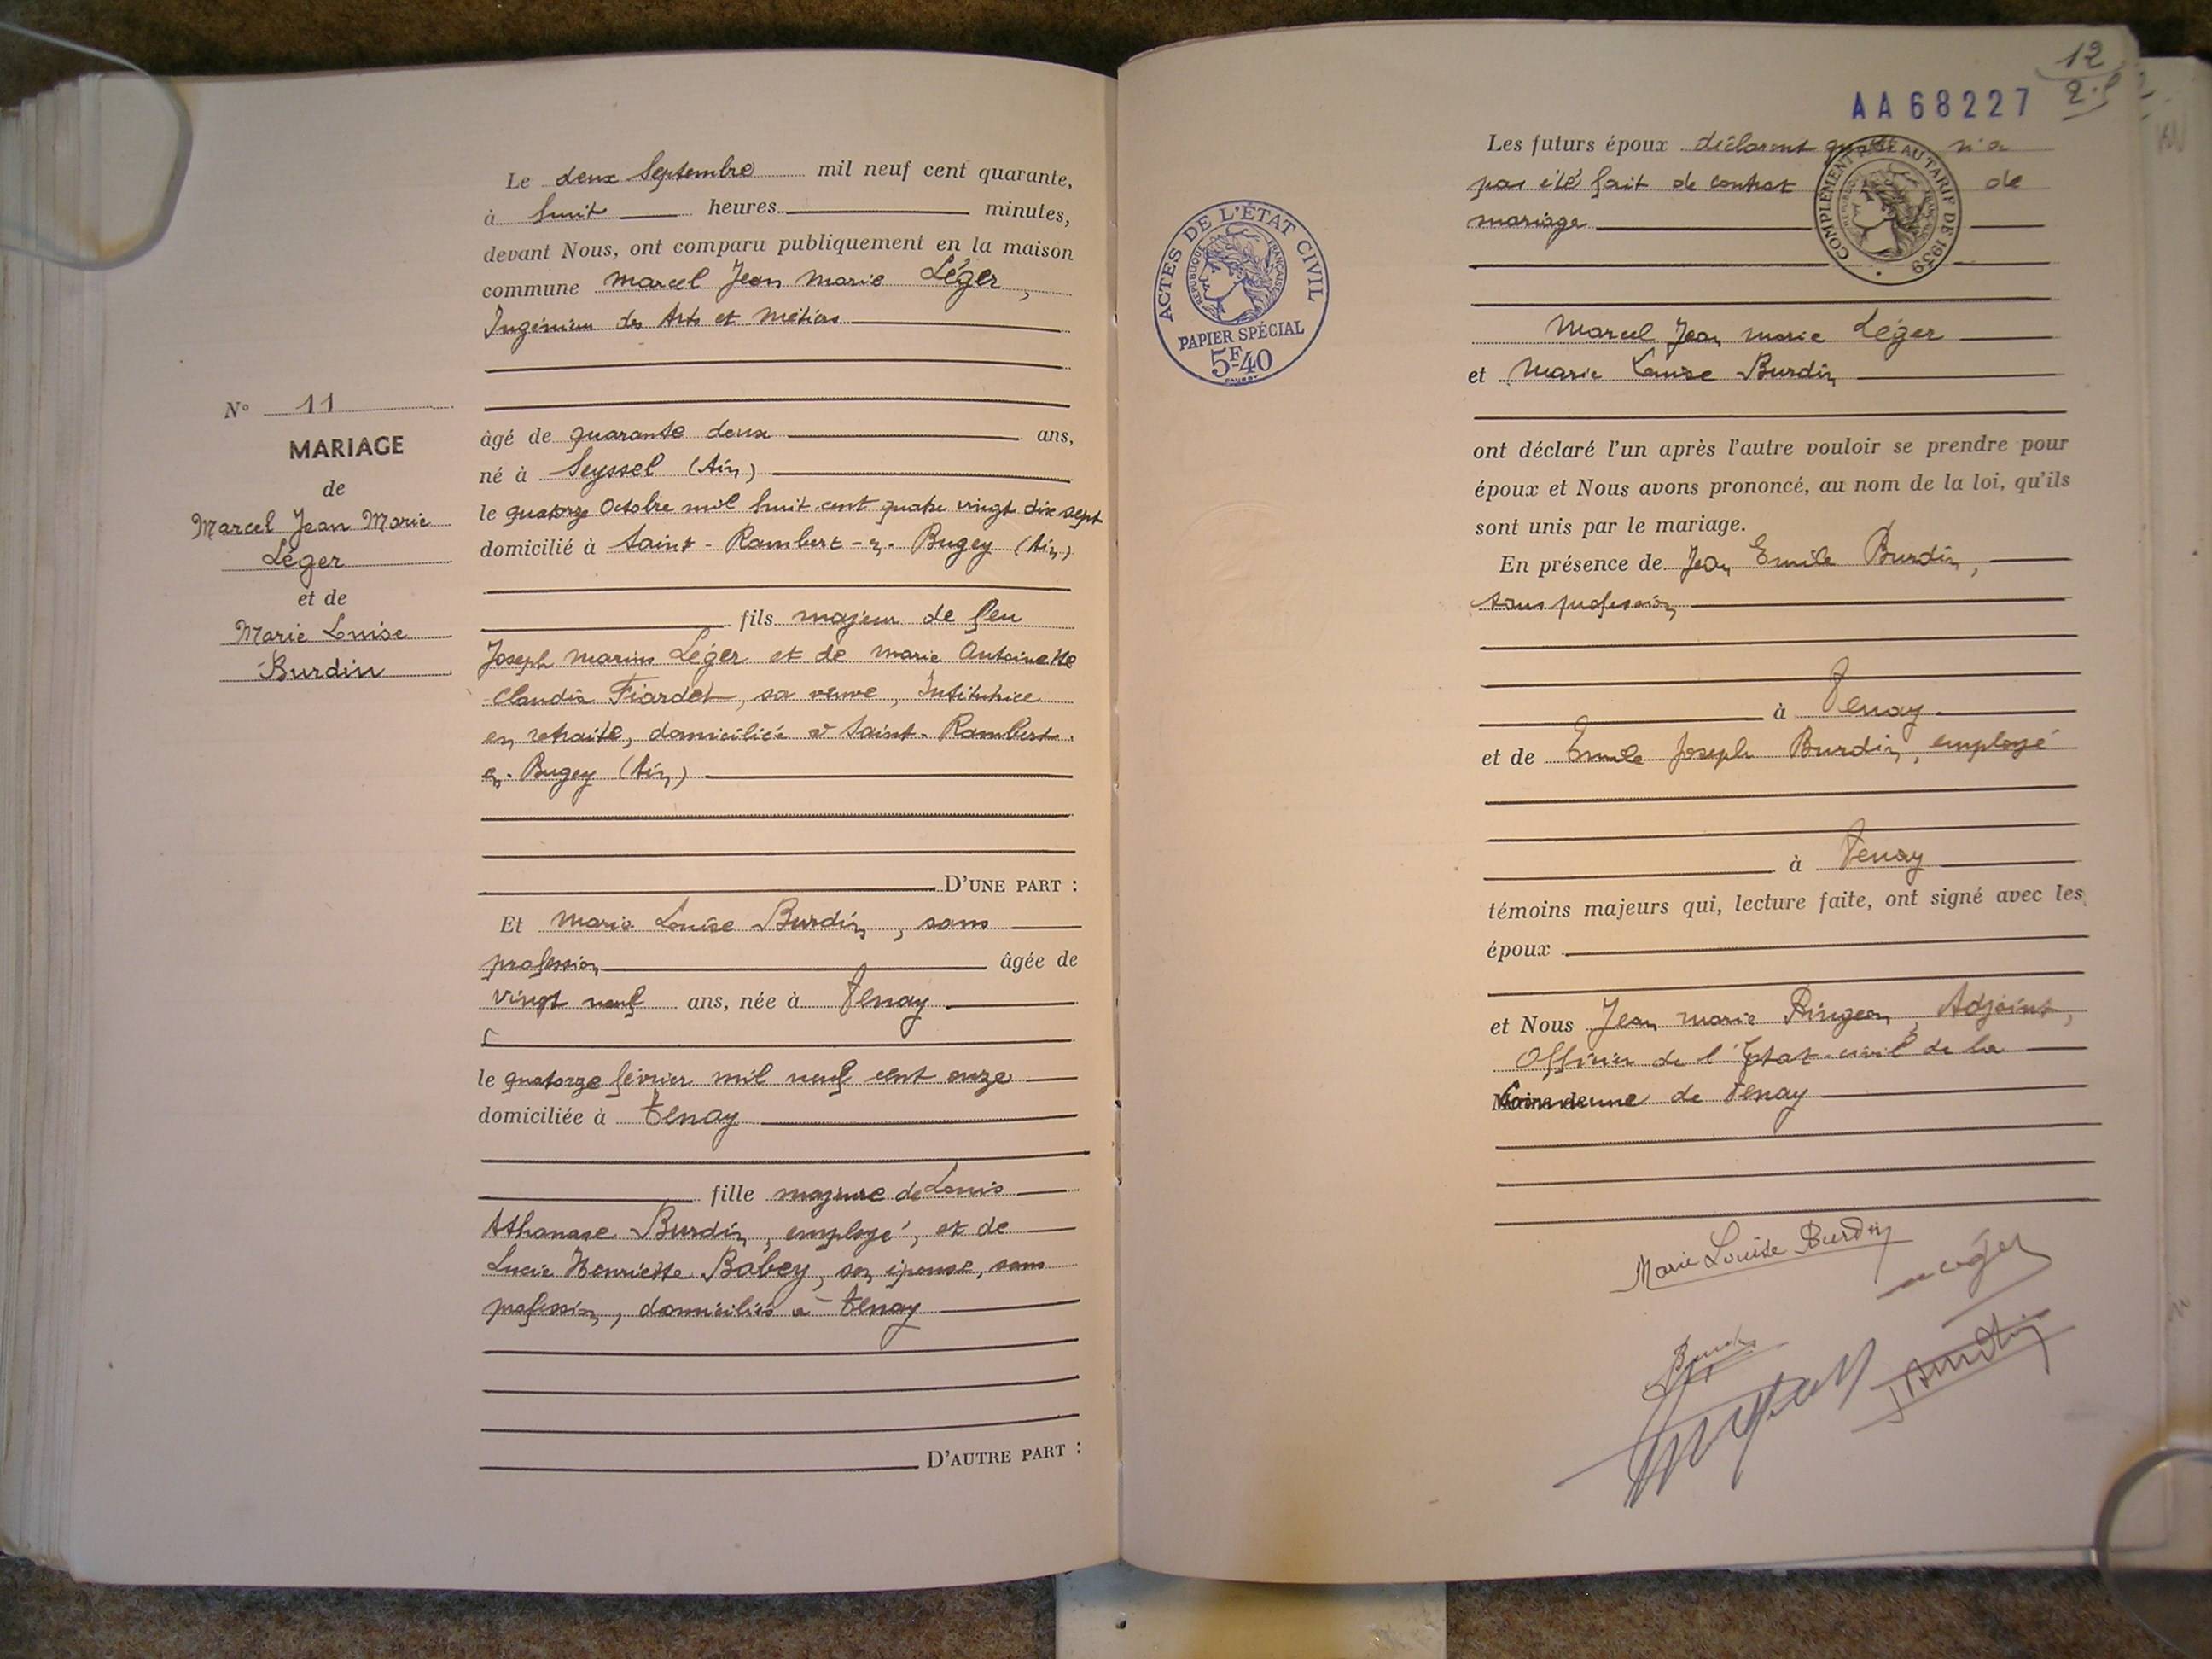 Le deux Septembre mil neuf cent quarante,
à huit heures minutes,
devant Nous, ont comparu publiquement en la maison
commune Marcel Jean Marie Léger,
Ingénieur des Arts et Métiers
N° 11
MARIAGE
de
Marcel Jean Marie
Léger
et de
Marie Louise
Burdin
âgé de quarante deux ans,
né à Seyssel (Ain)
le quatorze Octobre mil huit cent quatre vingt dix sept
domicilié à Saint-Rambert-en-Bugey (Ain)
fils majeur de feu
Joseph Marius Léger et de Marie Antoinette
Claudia Fiardet, sa veuve, Institutrice
en retraite, domiciliée à Saint-Rambert-
en-Bugey (Ain)
D'UNE PART :
Et Marie Louise Burdin, sans
profession âgée de
vingt neuf ans, née à Tenay
le quatorze février mil neuf cent onze
domiciliée à Tenay
fille majeure de Louis
Athanase Burdin, employé, et de
Lucie Henriette Babey, son épouse, sans
profession, domiciliés à Tenay
D'AUTRE PART :
12
2.
AA68227
Les futurs époux déclarent n'a
pas été fait de contrat de
mariage
COMPLÉMENTAIRE AU TARIF DE 1939
ACTES DE L'ÉTAT CIVIL
RÉPUBLIQUE FRANÇAISE
PAPIER SPÉCIAL
5F40
Marcel Jean Marie Léger
et Marie Louise Burdin
ont déclaré l'un après l'autre vouloir se prendre pour
époux et Nous avons prononcé, au nom de la loi, qu'ils
sont unis par le mariage.
En présence de Jean Emile Burdin,
sans profession
à Tenay
et de Emile Joseph Burdin, employé
à Tenay
témoins majeurs qui, lecture faite, ont signé avec les
époux
et Nous Jean Marie Pingeon, Adjoint,
Officier de l'Etat-civil de la
Commune de Tenay
Marie Louise Burdin
Léger
Burdin
J Burdin